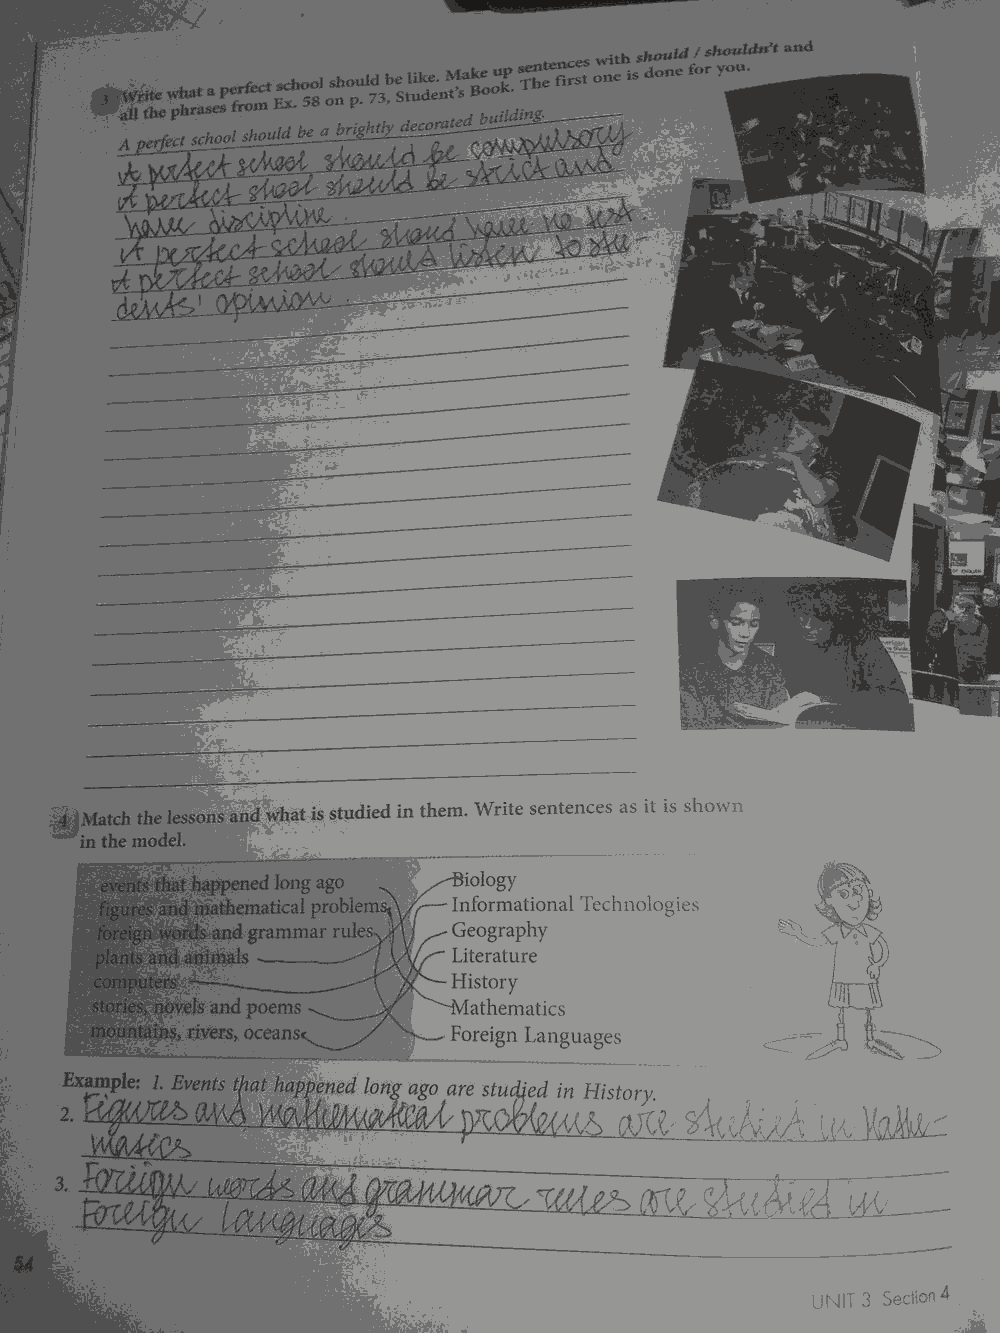 3 Write what a perfect school should be like. Make up sentences with should / shouldn't and
all the phrases from Ex. 58 on p. 73, Student's Book. The first one is done for you.
A perfect school should be a brightly decorated building.
A perfect school should be compulsory
A perfect shool should be strict and
have discipline.
A perfect school should have no test.
A perfect school should listen to stu-
dents' opinion.
4 Match the lessons and what is studied in them. Write sentences as it is shown
in the model.
events that happened long ago
figures and mathematical problems
foreign words and grammar rules
plants and animals
computers
stories, novels and poems
mountains, rivers, oceans
Biology
Informational Technologies
Geography
Literature
History
Mathematics
Foreign Languages
Example: 1. Events that happened long ago are studied in History.
2. Figures and mathematical problems are studied in Mathe-
matics
3. Foreign words and grammar rules are studied in
Foreign languages
54
UNIT 3 Section 4